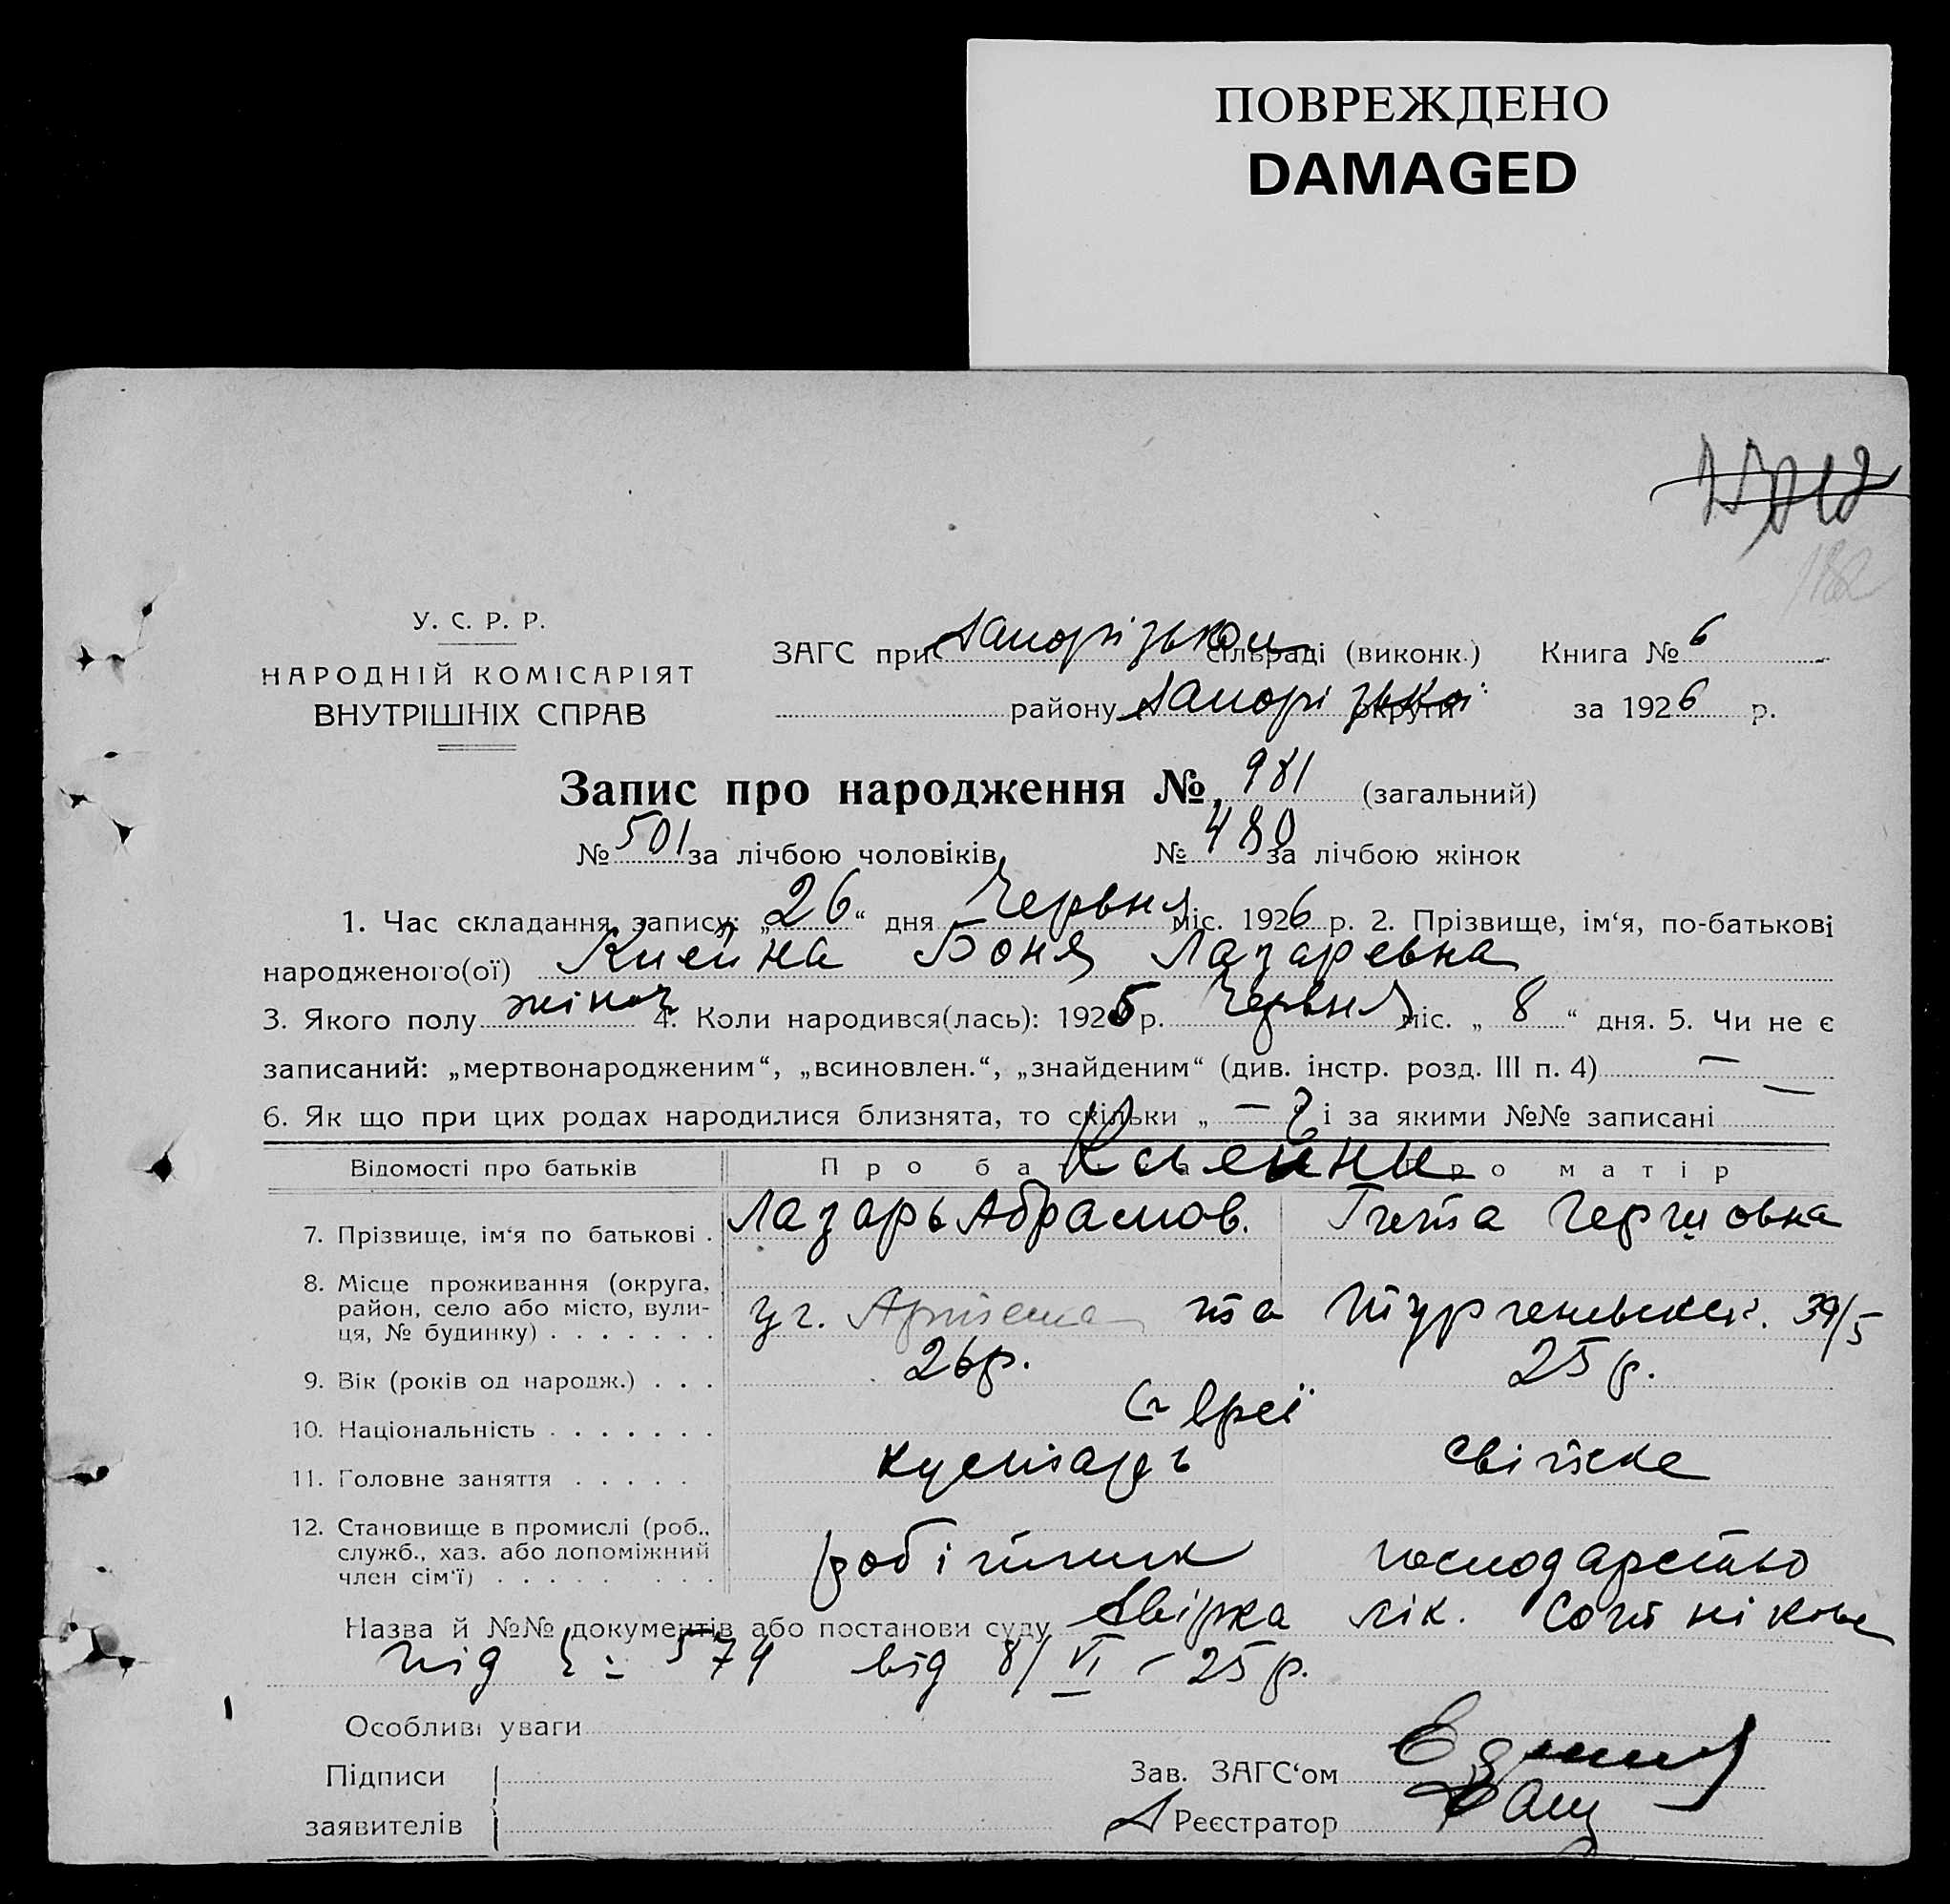 ПОВРЕЖДЕНО
DAMAGED
182
У. С. Р. Р.
НАРОДНІЙ КОМІСАРІЯТ
ВНУТРІШНІХ СПРАВ
ЗАГС при Запорізьком сільраді (виконк.) Книга № 6
району Запорізької округи за 1926 р.
Запис про народження № 981 (загальний)
№ 501 за лічбою чоловіків № 480 за лічбою жінок
1. Час складання запису: „26“ дня Червня міс. 1926 р. 2. Прізвище, ім‘я, по-батькові
народженого(ої) Клейна Боня Лазаревна
3. Якого полу жіноч 4. Коли народився(лась): 1925 р. Червня міс. „8“ дня. 5. Чи не є
записаний: „мертвонародженим“, „всиновлен.“, „знайденим“ (див. інстр. розд. III п. 4) —
6. Як що при цих родах народилися близнята, то скільки „—“ і за якими №№ записані —
Відомості про батьків Про батька Про матір
Клейни
7. Прізвище, ім‘я по батькові . Лазарь Абрамов. Гита Гершовна
8. Місце проживання (округа, район, село або місто, вулиця, № будинку) . . . . . . . уг. Артема та Тургеневської. 39/5
9. Вік (років од народж.) . . . 26р. 25 р.
10. Національність . . . . . . . Євреї
11. Головне заняття . . . . . кустарь свійське
12. Становище в промислі (роб., служб., хаз. або допоміжний член сім‘ї) робітник господарство
Назва й №№ документів або постанови суду Звірка лік. Сотнікове
під ч: 579 від 8/VI – 25 р.
Особливі уваги
Підписи
заявителів
Зав. ЗАГС‘ом
Реєстратор